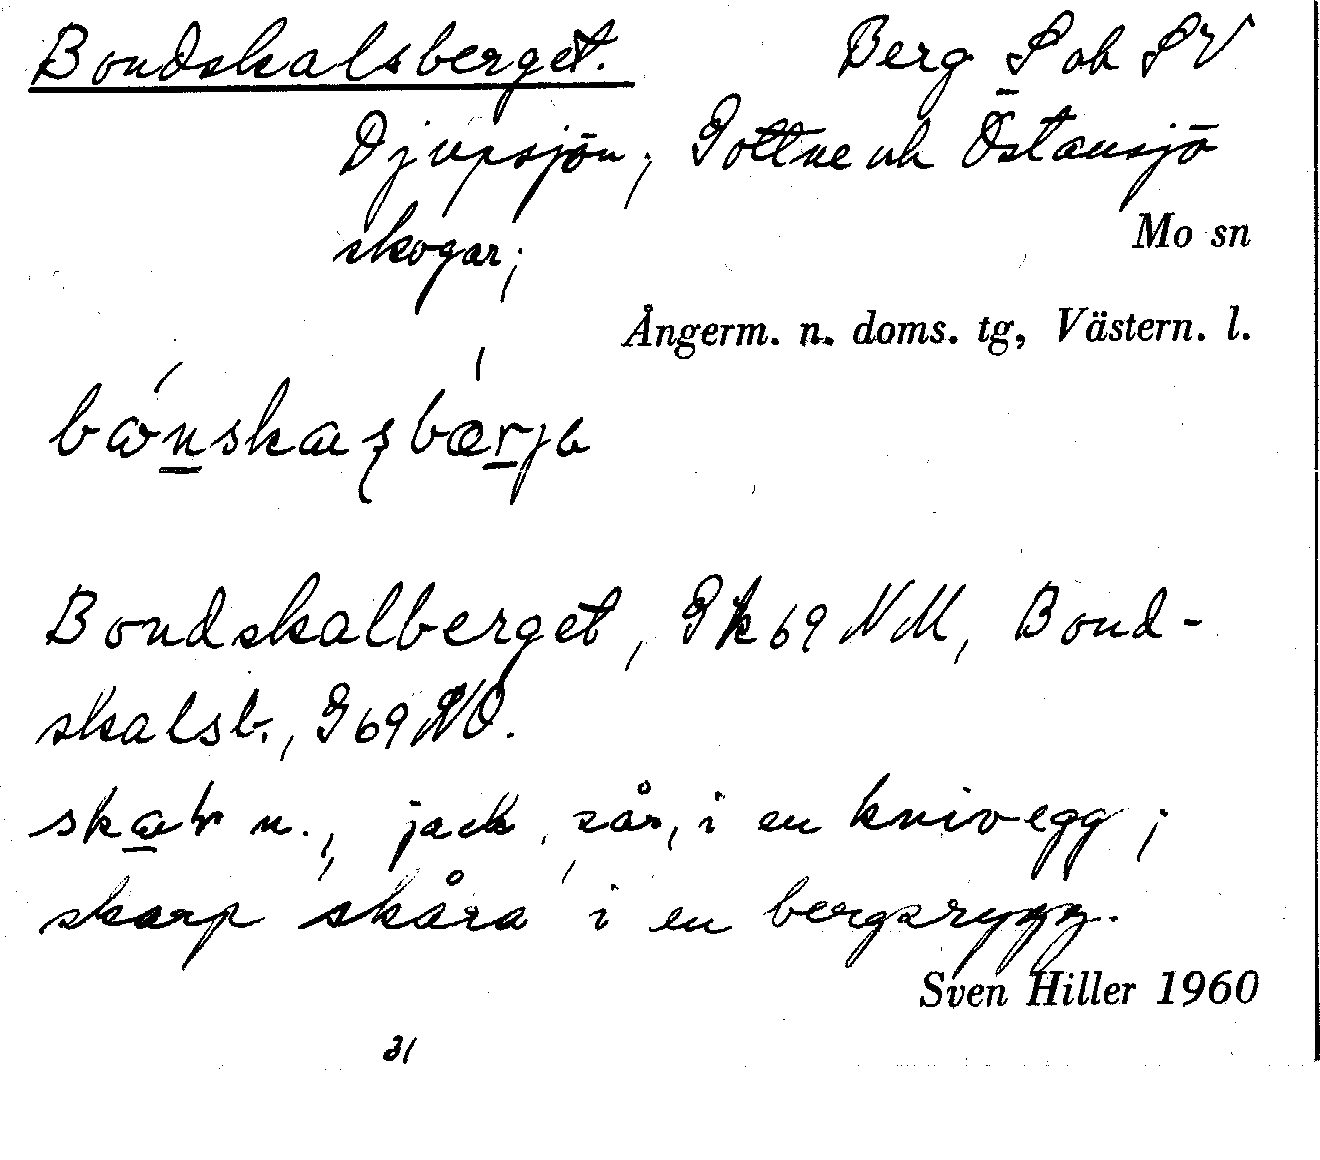 Bondskalsberget. Berg S och SV
Djupsjön, Gottne och Östansjö
skogar; Mo sn
Ångerm. n. doms. tg, Västern. l.
Bondskalberget, Gk 69 NM, Bond-
skalsb., G 69 NO.
n., jack, sår, i en knivegg;
skarp skåra i en bergsrygg.
Sven Hiller 1960
31